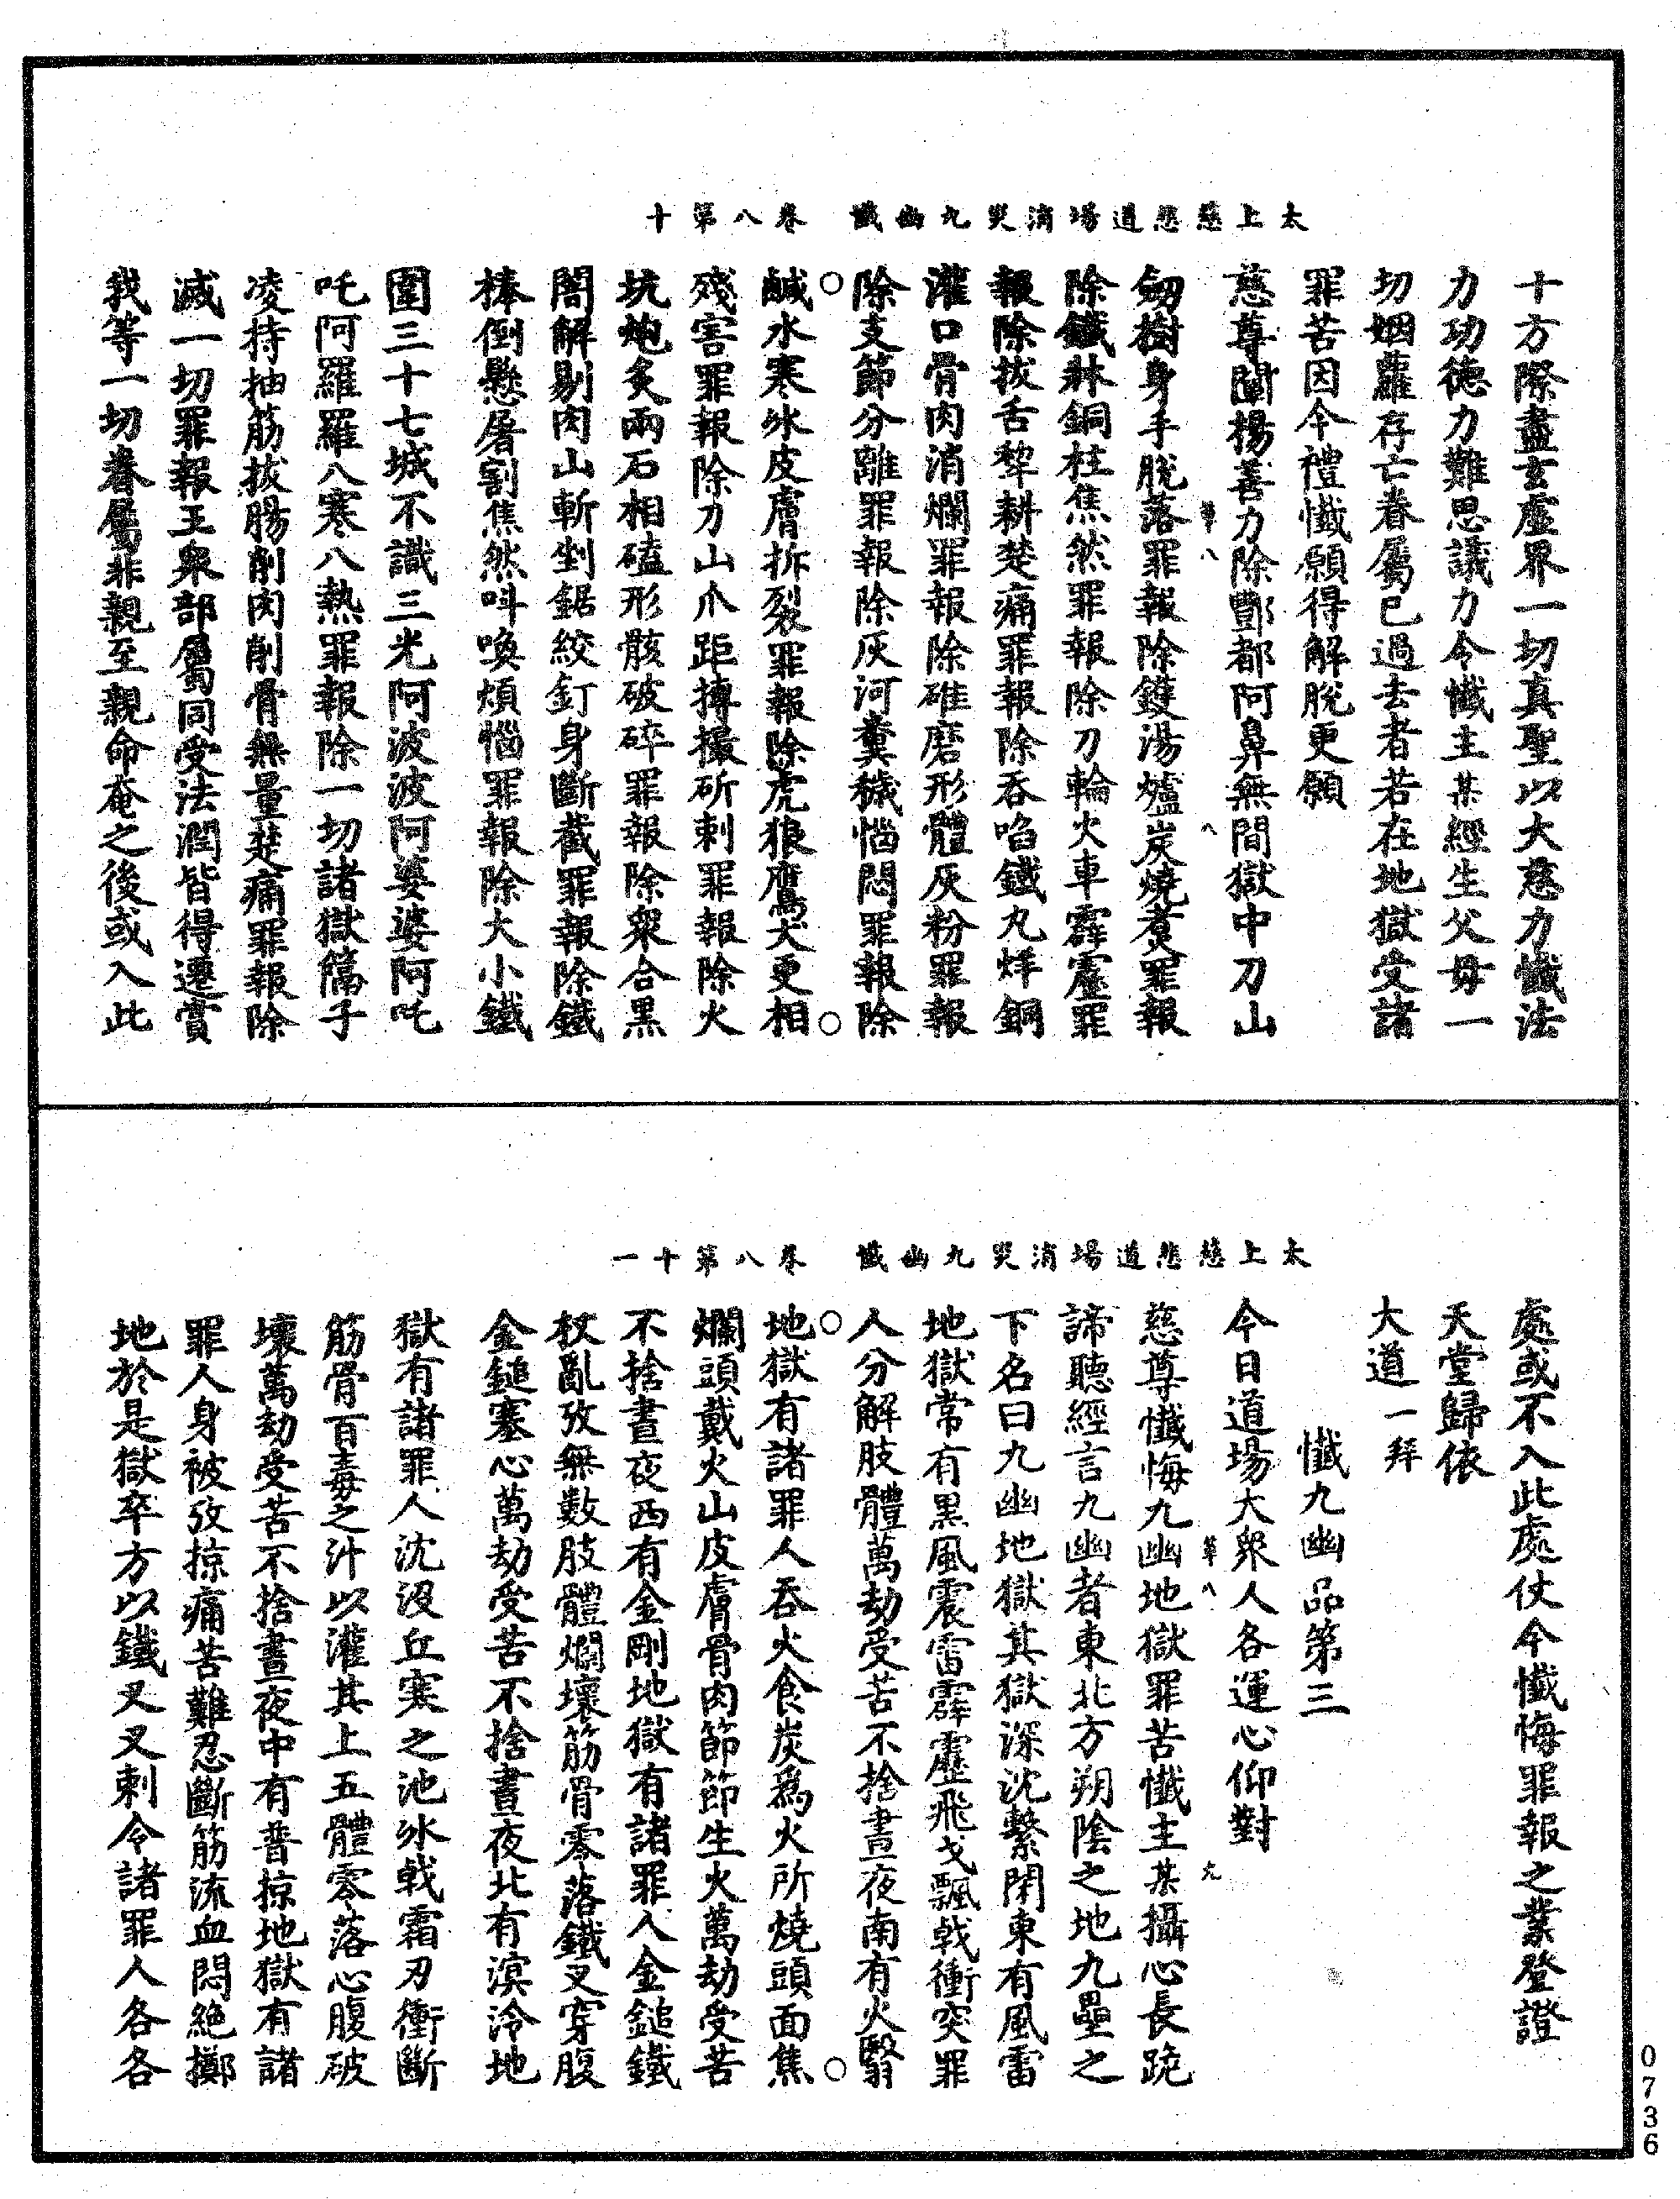 太上慈悲道場消災九幽懺　卷八第十
十方際盡玄虛界一切真聖以大慈力懺法
力功德力難思議力令懺主某經生父母一
切姻蘿存亡眷屬已過去者若在地獄受諸
罪苦因今禮懺願得解脫更願
慈尊闡揚善力除酆都阿鼻無間獄中刀山
草八
八
劒樹身手脫落罪報除鑊湯爐炭燒煮罪報
除鐵牀銅柱焦然罪報除刀輪火車霹靂罪
報除拔舌犂耕楚痛罪報除吞啗鐵丸烊銅
灌口骨肉消爛罪報除磓磨形體灰粉罪報
除支節分離罪報除灰河糞穢惱悶罪報除
鹹水寒氷皮膚拆裂罪報除虎狼鷹犬更相
殘害罪報除刀山爪距搏撮斫刺罪報除火
坑炮炙兩石相磕形骸破碎罪報除衆合黑
闇解剔肉山斬剉鋸絞釘身斷截罪報除鐵
棒倒懸屠割焦然呌喚煩惱罪報除大小鐵
圍三十七城不識三光阿波波阿婆婆阿吒
吒阿羅羅八寒八熱罪報除一切諸獄隔子
凌持抽筋拔腸削肉削骨無量楚痛罪報除
滅一切罪報王衆部屬同受法潤皆得遷賞
我等一切眷屬非親至親命奄之後或入此
太上慈悲道場消災九幽懺　卷八第十一
處或不入此處仗今懺悔罪報之業登證
天堂歸依
大道一拜
懺九幽品第三
今日道場大衆人各運心仰對
草八
九
慈尊懺悔九幽地獄罪苦懺主某攝心長跪
諦聽經言九幽者東北方朔陰之地九壘之
下名曰九幽地獄其獄深沈繫閉東有風雷
地獄常有黑風震雷霹靂飛戈飄戟衝突罪
人分解肢體萬劫受苦不捨晝夜南有火翳
地獄有諸罪人吞火食炭爲火所燒頭面焦
爛頭戴火山皮膚骨肉節節生火萬劫受苦
不捨晝夜西有金剛地獄有諸罪人金鎚鐵
杖亂攷無數肢體爛壞筋骨零落鐵叉穿腹
金鎚塞心萬劫受苦不捨晝夜北有溟泠地
獄有諸罪人沈沒丘寒之池氷戟霜刃衝斷
筋骨百毒之汁以灌其上五體零落心腹破
壞萬劫受苦不捨晝夜中有普掠地獄有諸
罪人身被攷掠痛苦難忍斷筋流血悶絶擲
地於是獄卒方以鐵叉叉刺令諸罪人各各
0736